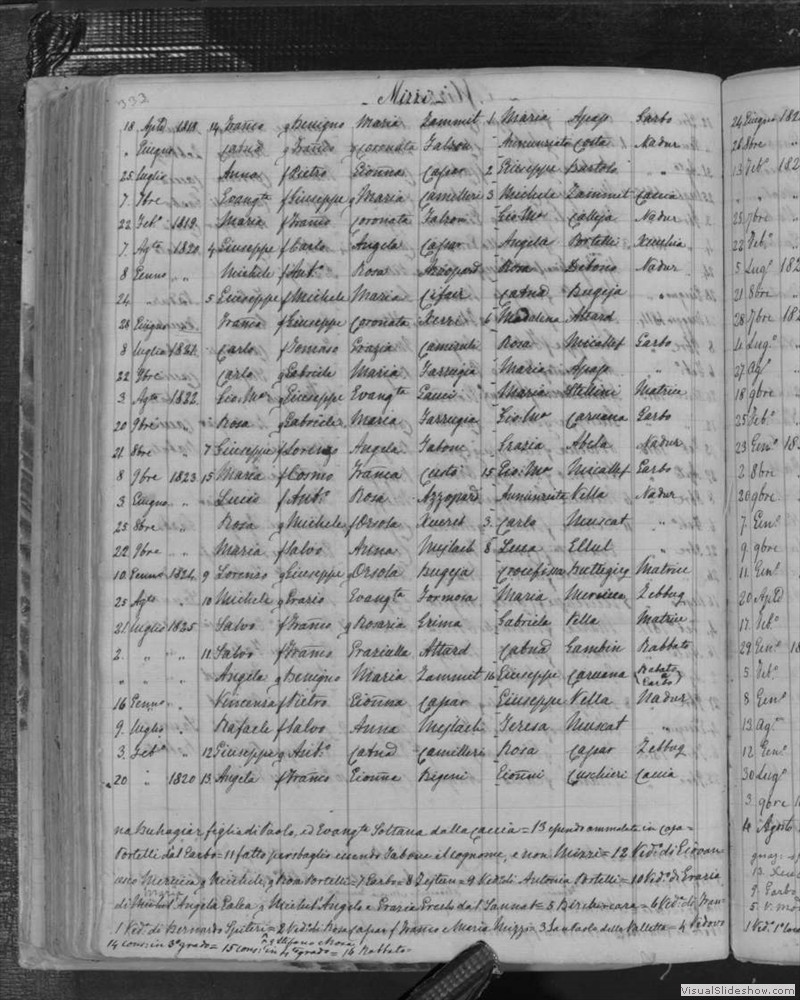 333
Mizzi
18 Aple 1818 14 Franco q Benigno Maria Zammit 1 Maria Apap Garbo
" Giugno " Catna f Franco q Coronata Falzon Annunziata Costa Nadur
25 Luglio " Anna f Pietro Gionna Capar 2 Giuseppe Bartolo "
7 7bre " Evangta f Giuseppe q Maria Camilleri 3 Michele Zammit Caccia
22 Feb. 1819 Maria f Franco Coronata Falzon Gio Ma Calleja Nadur
7 Agto 1820 4 Giuseppe f Carlo Angela Capar Angela Portelli Xeuchia
8 Genno " Michele f Anto Rosa Azzopard Rosa Debono Nadur
24 " " 5 Giuseppe f Michele Maria Catna Bugeja "
28 Giugno Franco f Giuseppe Coronata Xerri 6 Madalena Attard
8 Luglio 1821 Carlo f Tomaso Grazia Rosa Micallef Garbo
22 9bre Carlo q Gabriele Maria Farrugia Maria Apap "
3 Agto 1822 Gio Ma q Giuseppe Evangta Gauci Maria Stellini Matrice
20 9bre " Rosa q Gabriele Maria Farrugia Gio Ma Caruana Garbo
21 8bre " 7 Giuseppe f Lorenzo Angela Tabone Grazia Abela Nadur
8 9bre 1823 15 Maria f Cosmo Franca Custò 15 Gio Ma Micallef Garbo
3 Giugno " Lucio f Anto Rosa Azzopard Annunziata Vella Nadur
25 8bre " Rosa q Michele f Orsola Xuereb 3 Carlo Muscat "
22 9bre " Maria f Salvo Anna Mejlach 8 Luca Ellul "
10 Genno 1824 9 Lorenzo q Giuseppe q Orsola Bugeja Crocefissa Buttigieg Matrice
25 Agto " 10 Michele q Grazio Evangta Formosa Maria Mercieca Zebbug
21 Luglio 1825 Salvo f Franco q Rosaria Grima Gabriela Vella Matrice
2 " " 11 Salvo f Franco Graziulla Attard Catna Gambin Rabbato
" " " Angela q Benigno Maria Zammit 16 Giuseppe Caruana (Rabato Garbo)
16 Genno " Vincenza f Pietro Gionna Capar Giuseppe Vella Nadur
9 Luglio " Rafaele f Salvo Anna Mejlach Teresa Muscat "
3 Feb. " 12 Giuseppe q Anto Catna Camilleri Rosa Capar Zebbug
20 " 1820 13 Angela f Franco Gionna Bigeni Gionni Cuschieri Caccia
na Buhagiar, figlia di Paolo, ed Evangta Soltana dalla Caccia = 13 essendo ammalata in casa =
Portelli dal Garbo = 11 fatto per sbaglio essendo Tabone il cognome, e non Mizzi = 12 Vedo di Giovan
ano Mercieca q Michele, q Rosa Portelli = 7 Garbo = 8 Zejtun = 9 Vedo di Antonia Portelli = 10 Vedo di Grazia
di Michel Angela Galea q Michel Angelo e Grazia dal Sannat = 5 Birchircara = 6 Vedo di Fran
1 Ved. di Bernardo Spiteri = 2 Ved. di Rosa Capar f Franco e Maria Mizzi = 3 San Paolo della Valletta = 4 Vedovo
14 cons: in 3o grado = 15 cons: in 4to grado = 16 Rabbato =
24 Giugno 182
26 8bre
13 Feb. 182
25 7bre
22 Feb.
5 Lugo 182
21 8bre
28 7bre 182
4 Lugo
27 Ago
18 9bre
25 Feb.
23 Geno 18
2 8bre
20 9bre
7 Geno
9 9bre
11 Geno
20 Aple
17 Feb.
29 Geno 18
5 Feb.
8 Geno
13 Ago
12 Geno
30 Lugo
3 9bre 1
4 Agosto
9 Garbo
VisualSlideshow.com